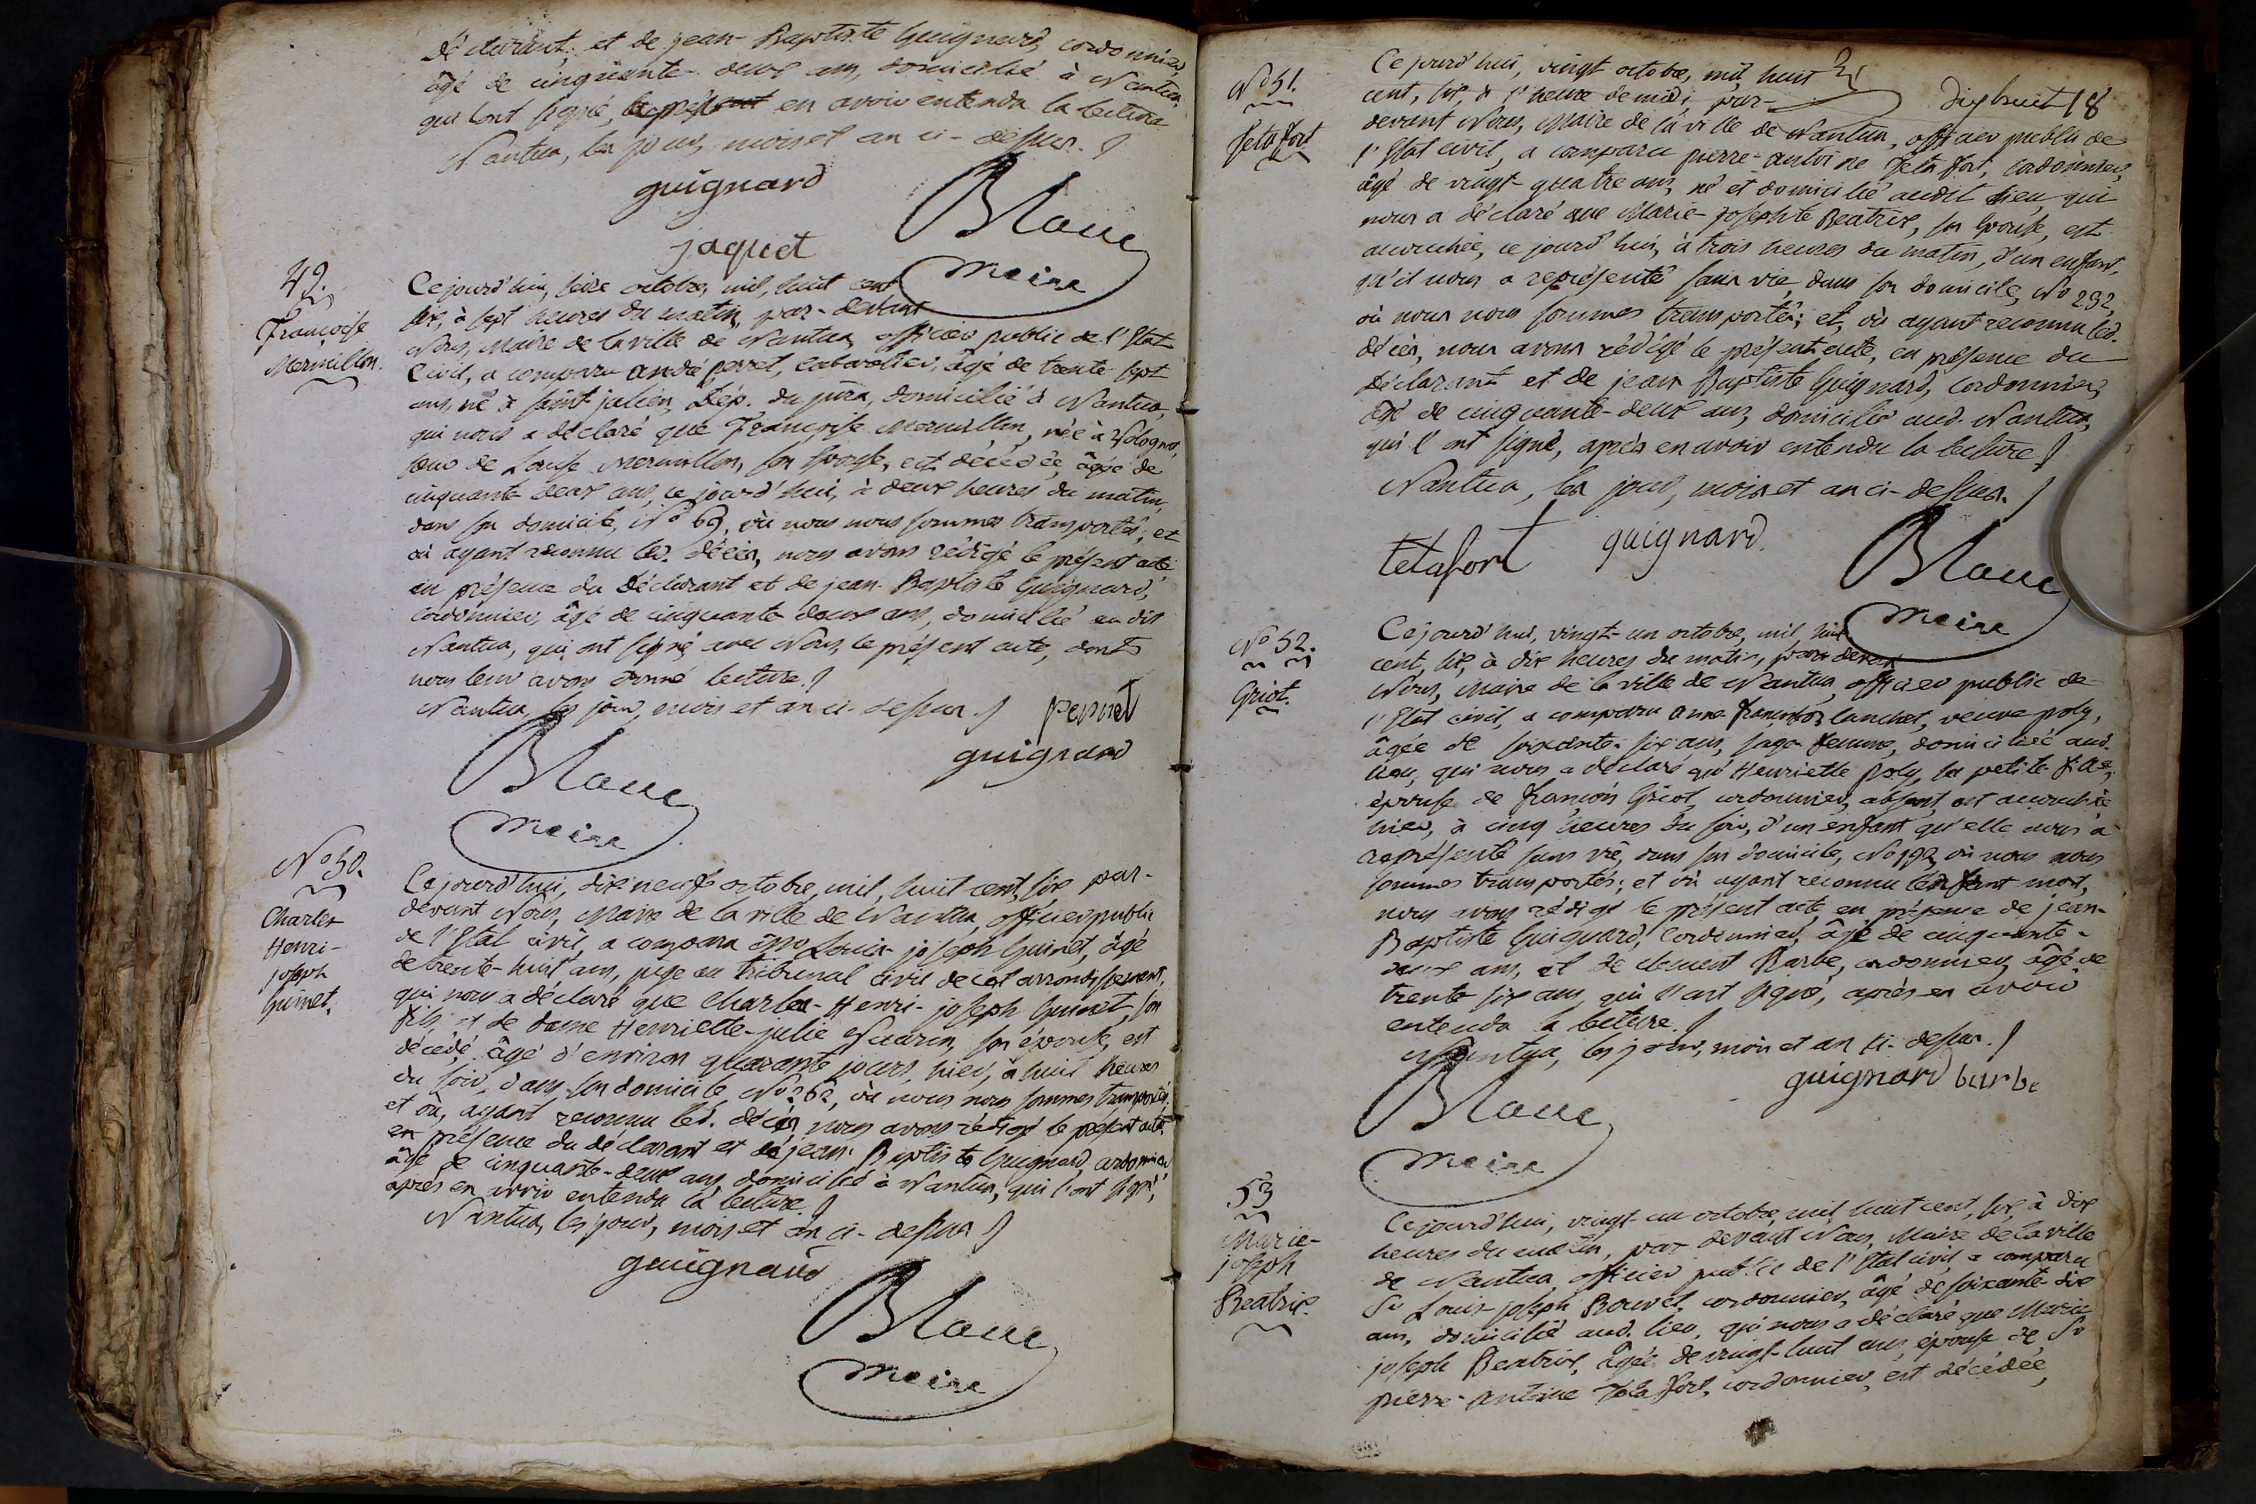 déclarant, et de jean-Baptiste Guignard, cordonnier,
âgé de cinquante-deux ans, domicilié à Nantua,
qui l'ont signé, en avoir entendu la lecture
Nantua, les jour, mois et an ci-dessus.
guignard
jaquet
Blanc
Maire
49.
Françoise
Mermillon.
Ce jourd'hui, seize octobre, mil, huit cent
six, à sept heures du matin, par-devant
Nous, Maire de la ville de Nantua, officier public de l'Etat
Civil, a comparu andré perret, cabaretier, âgé de trente sept
ans, né à saint julien, Dép. du jura, domicilié à Nantua,
qui nous a déclaré que Françoise Mermillon, née à Volognat,
Mermillon, son épouse, est décédée, âgée de
cinquante deux ans, ce jourd'hui, à deux heures du matin,
dans son domicile, No 69, où nous nous sommes transportés; et
où ayant reconnu led. décès, nous avons rédigé le présent acte
en présence du déclarant et de jean-Baptiste Guignard,
cordonnier, âgé de cinquante deux ans, domicilié audit
Nantua, qui ont signé, avec Nous, le présent acte, dont
nous leur avons donné lecture.
Nantua, les jour, mois et an ci-dessus.
perret
guignard
Blanc
Maire
No 50.
Charles
Henri-
joseph
Guinet.
Ce jourd'hui, dix neuf octobre, mil, huit cent, six par-
devant Nous, Maire de la ville de Nantua, officier public
de l'Etat civil, a comparu Louis joseph Guinet, âgé
de trente-huit ans, juge au tribunal civil de cet arrondissement,
qui nous a déclaré que Charles-Henri-joseph Guinet, son
fils, et de dame Henriette-julie son épouse, est
décédé âgé d'environ quarante jours, hier, à huit heures
du soir, dans son domicile No 262, où nous nous sommes transportés
et où, ayant reconnu led. décès nous avons rédigé le présent acte
en présence du déclarant et de jean-Baptiste Guignard, cordonnier
âgé de cinquante-deux ans, domicilié à Nantua, qui l'ont signé,
après en avoir entendu la lecture.
Nantua, les jour, mois et an ci-dessus
guignard
Blanc
Maire
dix huit 18
No 51.
Tetafort
Ce jourd'hui, vingt octobre, mil, huit
cent, six, à l'heure de midi, par-
devant Nous, Maire de la ville de Nantua, officier public de
l'Etat civil, a comparu pierre-antoine Tetafort, cordonnier,
âgé de vingt-quatre ans, né et domicilié audit lieu, qui
nous a déclaré que Marie-josephte Beatrix, son épouse, est
accouchée, ce jourd'hui, à trois heures du matin, d'un enfant,
qu'il nous a représenté sans vie, dans son domicile, No 292,
où nous nous sommes transportés; et, où ayant reconnu led.
décès, nous avons rédigé le présent acte, en présence du
déclarant et de jean Baptiste Guignard, cordonnier,
âgé de cinquante-deux ans, domicilié aud. Nantua,
qui l'ont signé, après en avoir entendu la lecture
Nantua, les jour, mois et an ci-dessus.
tetafort
guignard.
Blanc
Maire
No 52.
Griot.
Ce jourd'hui, vingt-un octobre, mil, huit
cent, six, à dix heures du matin, par devant
Nous, Maire de la ville de Nantua, officier public de
l'Etat civil, a comparu anne lanchet, veuve poly,
âgée de soixante-six ans, sage femme, domiciliée aud.
lieu, qui nous a déclaré qu'Henriette Poly, sa petite-fille,
épouse de françois Griot, cordonnier, absent, est accouchée
hier, à cinq heures du soir, d'un enfant qu'elle nous a
représenté sans vie, dans son domicile, No 192, où nous nous
sommes transportés; et où ayant reconnu l'enfant mort,
nous avons rédigé le présent acte en présence de jean-
Baptiste Guignard, cordonnier, âgé de cinquante-
deux ans, et de clement Barbe, cordonnier, âgé de
trente six ans, qui l'ont signé, après en avoir
entendu la lecture.
Nantua, les jour, mois et an ci-dessus.
guignard barbe
Blanc
Maire
53
Marie-
joseph
Beatrix.
Ce jourd'hui, vingt-un octobre, mil, huit cent, six, à dix
heures du matin, par devant Nous, Maire de la ville
de Nantua officier public de l'Etat civil, a comparu
Sr Louis-joseph Bouvet, cordonnier, âgé de soixante-dix
ans, domicilié aud. lieu, qui nous a déclaré que Marie
joseph Beatrix, âgée de vingt-huit ans, épouse de Sr
pierre-antoine Tetafort, cordonnier, est décédée,